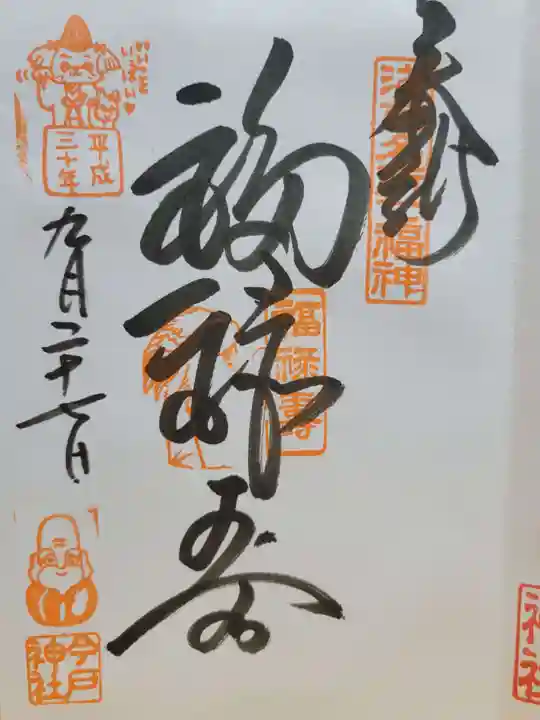 奉拝
浅草名所七福神
福禄寿
福禄寿
平成
三十年
九月二十七日
今戸
神社
神社